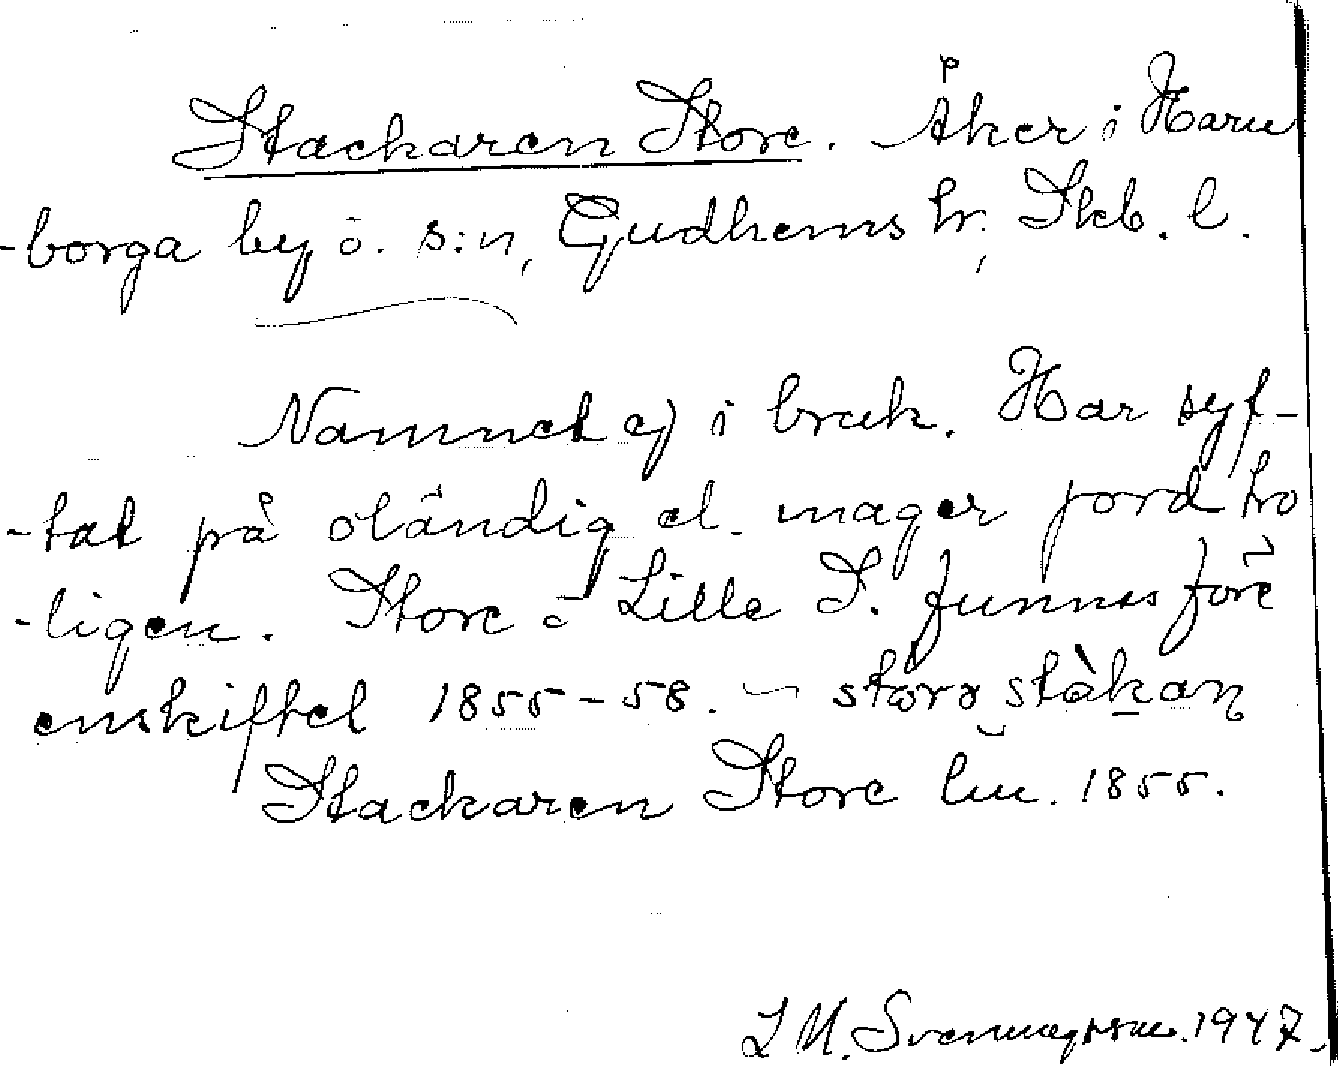 Stackaren Store. Åker i Harne
-borga by o. s:n, Gudhems hr, Skb. l.
Namnet ej i bruk. Har syf-
-tat på oländig el. mager jord tro
-ligen. Store o Lille S. funnos före
enskiftet 1855-58. – storə stàkan
Stackaren Store lm. 1855.
L M. Svenungsson. 1947.